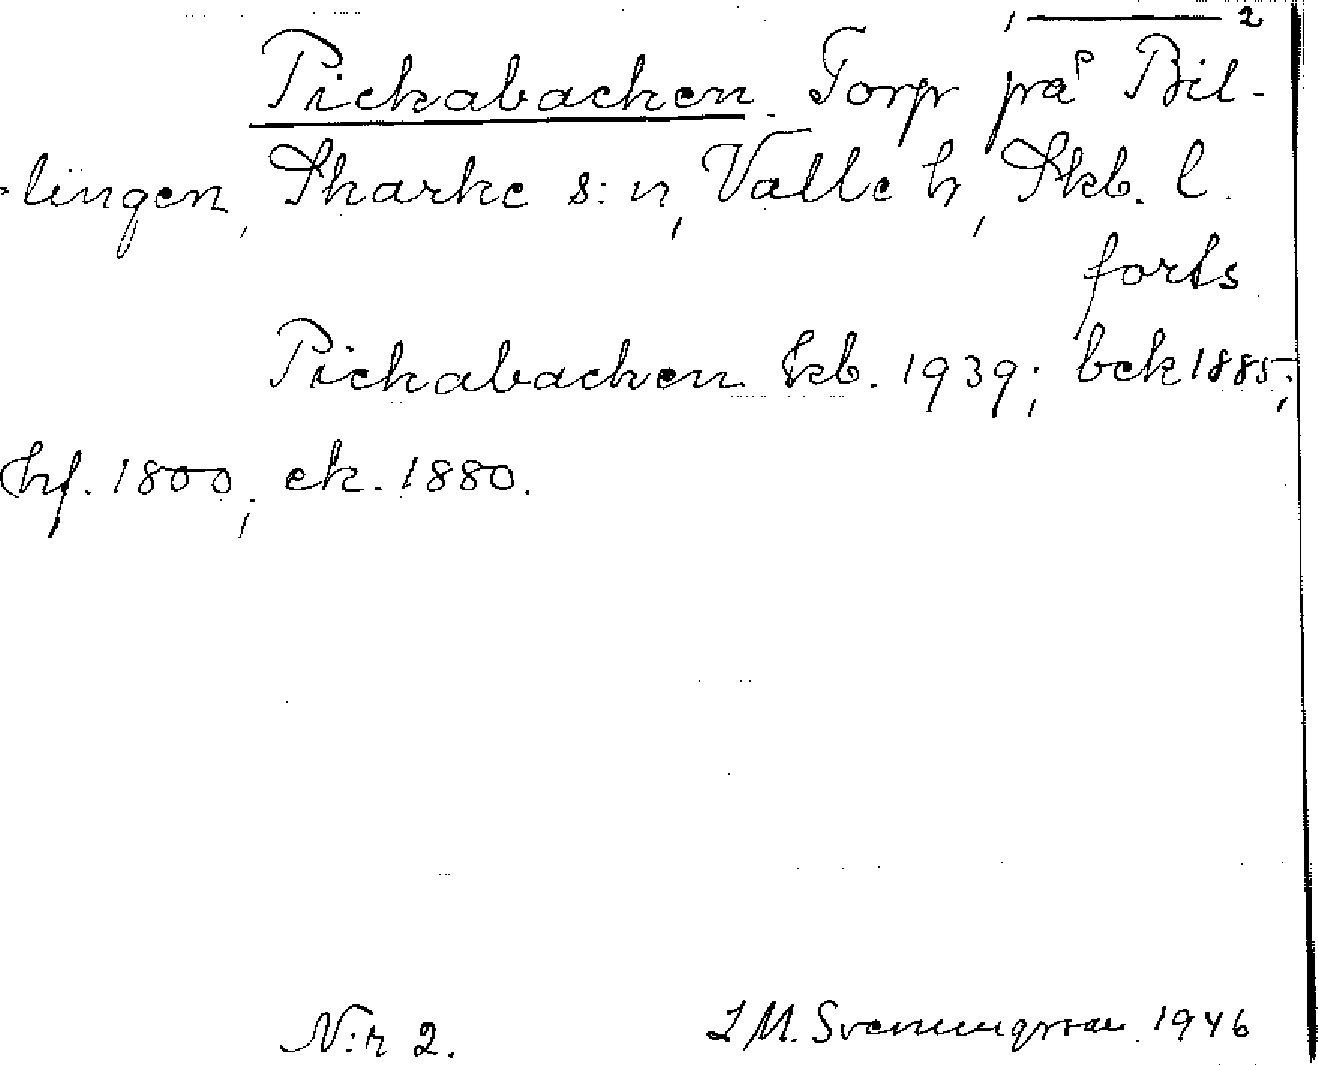 1 — 2
Pickabacken. Torp på Bil-
lingen, Skarke s:n, Valle h, Skb. l.
forts
Pickabacken kb. 1939; bck 1885;
hf. 1800; ek. 1880.
N:r 2. I M. Svenungsson 1946